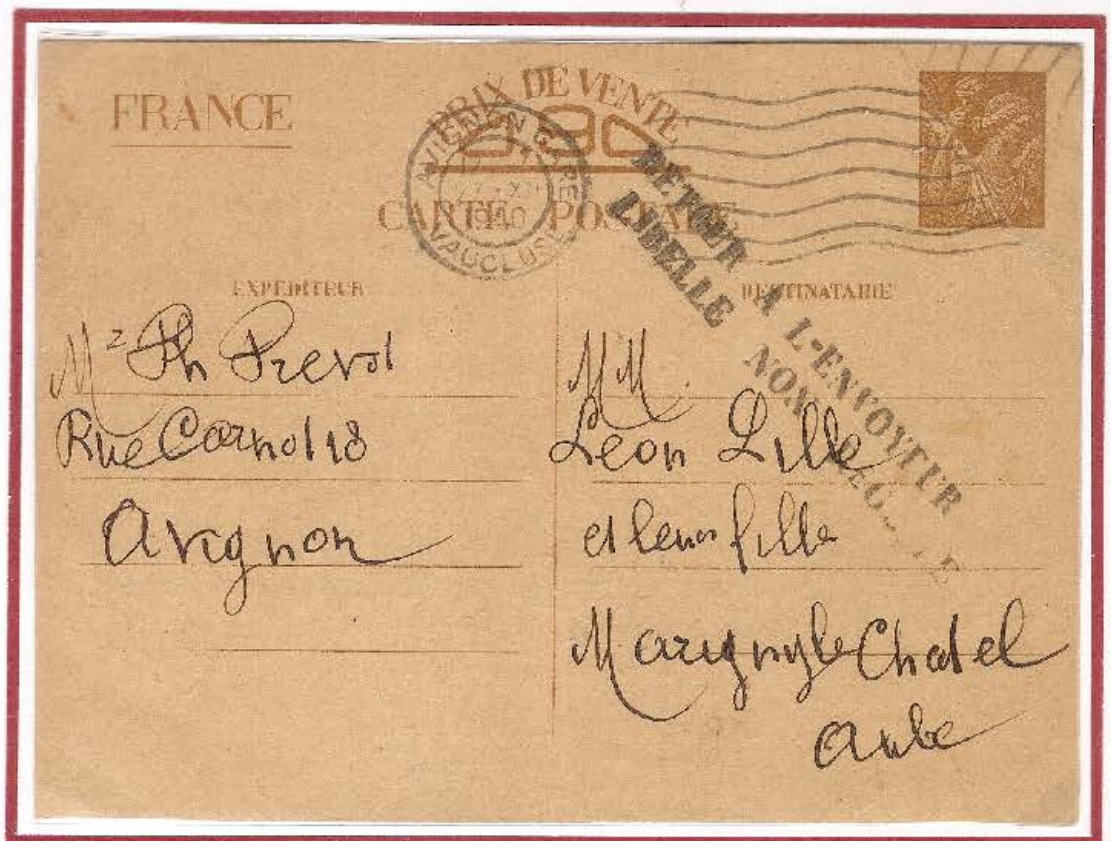 FRANCE
PRIX DE VENTE
0,90
CARTE POSTALE
AVIGNON GARE
1940
VAUCLUSE
RETOUR A L-ENVOYEUR
LIBELLE NON
EXPEDITEUR
Mr Ph Prevot
Rue Carnot 18
Avignon
DESTINATAIRE
MM.
Leon Lille
et leur fille
Marigny le Chatel
Aube